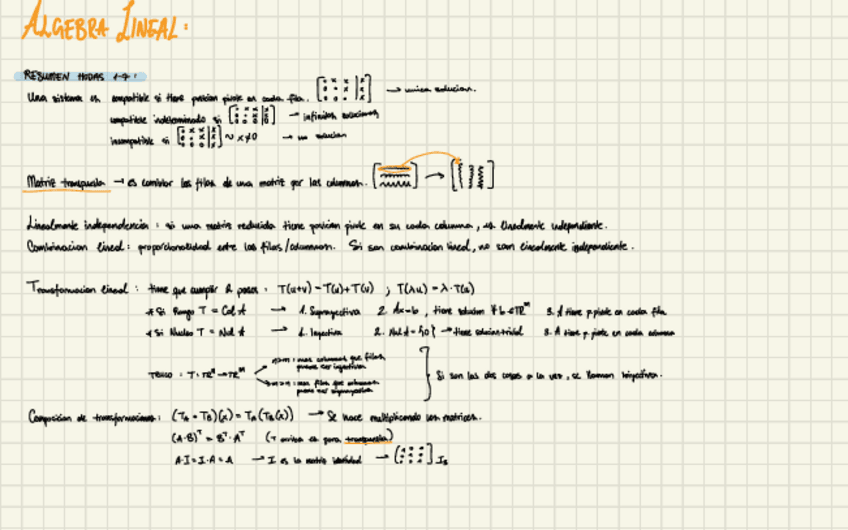 ÁLGEBRA LINEAL:
RESUMEN HOJAS 1-7:
Una sistema es compatible si tiene posicion pivote en cada fila. → unica solucion.
compatible indeterminado si → infinitas soluciones
incompatible si ~ x≠0 → no solucion
Matriz transpuesta → es cambiar las filas de una matriz por las columnas. →
Linealmente independencia: si una matriz reducida tiene posicion pivote en su cada columna, es linealmente independiente.
Combinacion lineal: proporcionalidad entre las filas/columnas. Si son combinacion lineal, no son linealmente independiente.
Transformacion lineal: tiene que cumplir 2 pasos: T(u+v)=T(u)+T(v) ; T(λu)=λ·T(u)
* Si Rango T = Col A → 1. Suprayectiva 2. Ax=b, tiene solucion ∀ b ∈ ℝᵐ 3. A tiene p. pivote en cada fila
* Si Nucleo T = Nul A → 1. Inyectiva 2. Nul A = {0} → tiene solucion trivial 3. A tiene p. pivote en cada columna
T: ℝⁿ → ℝᵐ
n>m: mas columnas que filas, puede ser
m>n: mas filas que columnas puede ser
Si son las dos cosas a la vez, se llaman biyectiva.
Composicion de transformaciones: (T_A ∘ T_B)(x) = T_A(T_B(x)) → Se hace multiplicando las matrices.
(A·B)ᵀ = Bᵀ·Aᵀ (T arriba es para transpuesta)
A·I = I·A = A → I es la matriz identidad → I₃